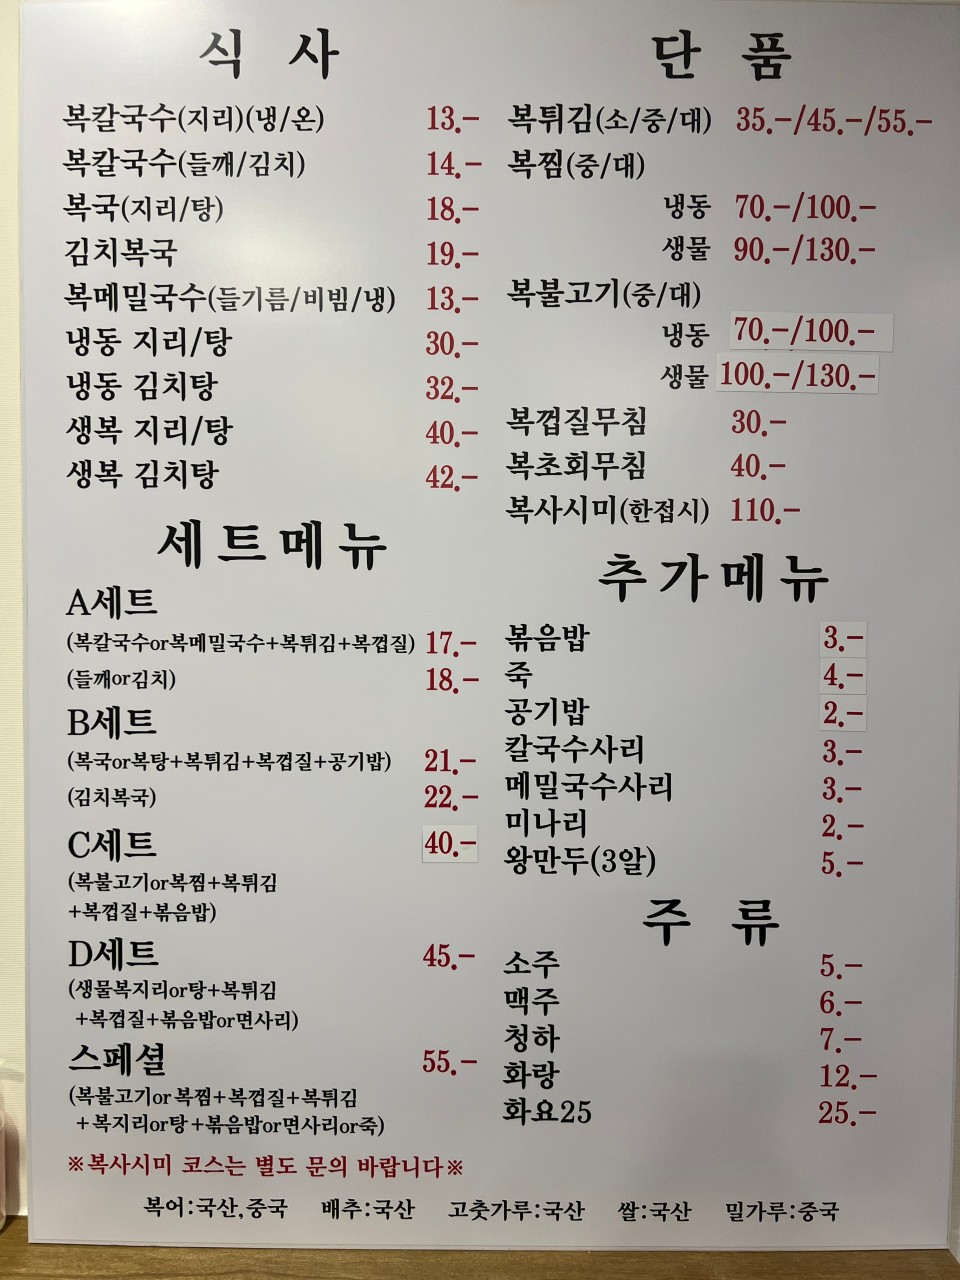 식 사
복칼국수(지리)(냉/온) 13.-
복칼국수(들깨/김치) 14.-
복국(지리/탕) 18.-
김치복국 19.-
복메밀국수(들기름/비빔/냉) 13.-
냉동 지리/탕 30.-
냉동 김치탕 32.-
생복 지리/탕 40.-
생복 김치탕 42.-
세트메뉴
A세트
(복칼국수or복메밀국수+복튀김+복껍질) 17.-
(들깨or김치) 18.-
B세트
(복국or복탕+복튀김+복껍질+공기밥) 21.-
(김치복국) 22.-
C세트 40.-
(복불고기or복찜+복튀김
+복껍질+볶음밥)
D세트 45.-
(생물복지리or탕+복튀김
+복껍질+볶음밥or면사리)
스페셜 55.-
(복불고기or복찜+복껍질+복튀김
+복지리or탕+볶음밥or면사리or죽)
단 품
복튀김(소/중/대) 35.-/45.-/55.-
복찜(중/대)
냉동 70.-/100.-
생물 90.-/130.-
복불고기(중/대)
냉동 70.-/100.-
생물 100.-/130.-
복껍질무침 30.-
복초회무침 40.-
복사시미(한접시) 110.-
추가메뉴
볶음밥 3.-
죽 4.-
공기밥 2.-
칼국수사리 3.-
메밀국수사리 3.-
미나리 2.-
왕만두(3알) 5.-
주 류
소주 5.-
맥주 6.-
청하 7.-
화랑 12.-
화요25 25.-
※복사시미 코스는 별도 문의 바랍니다※
복어:국산,중국 배추:국산 고춧가루:국산 쌀:국산 밀가루:중국